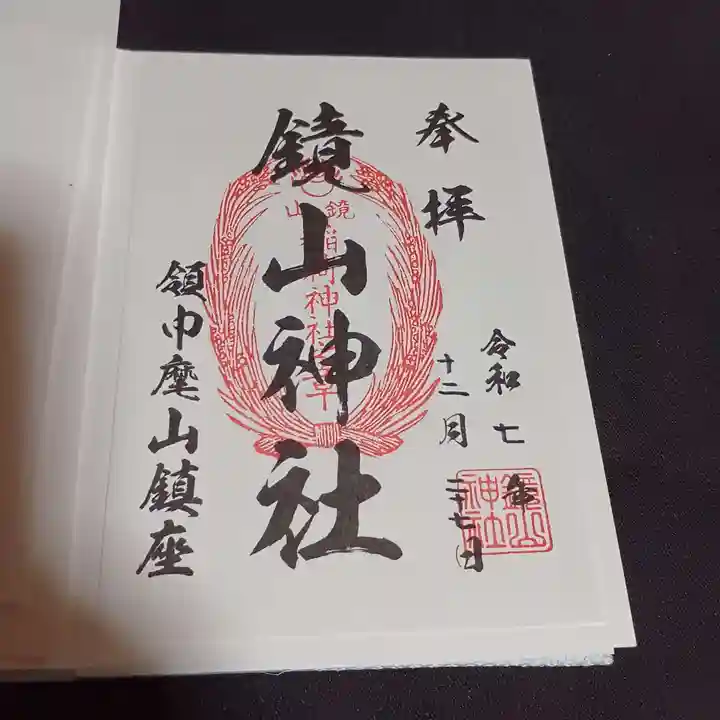 奉拝
令和七年
十二月二十七日
鏡山神社
領巾麾山鎮座
鏡山
稲荷神社
鏡山
神社